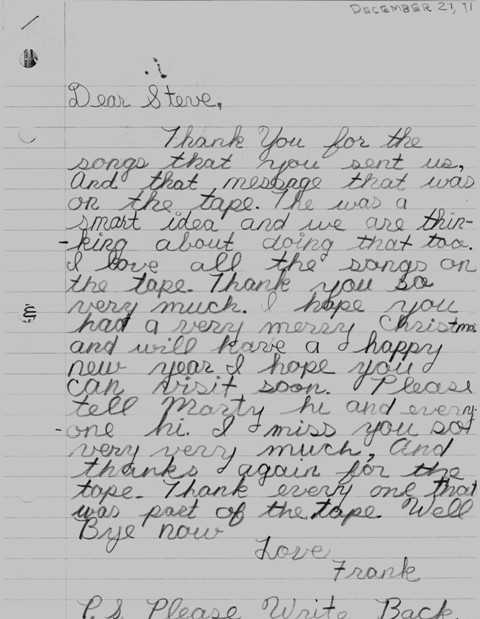 DECEMBER 27, 71
Dear Steve,
Thank You for the
songs that you sent us,
And that message that was
on the tape. The was a
smart idea and we are thin-
-king about doing that too.
I love all the songs on
the tape. Thank you so
very much. I hope you
had a very merry Christmas
and will have a happy
new year I hope you
can visit soon. Please
tell Marty hi and every-
-one hi. I miss you so
very very much, And
thanks again for the
tape. Thank every one that
was part of the tape. Well
Bye now
Love
Frank
P.S. Please Write Back.